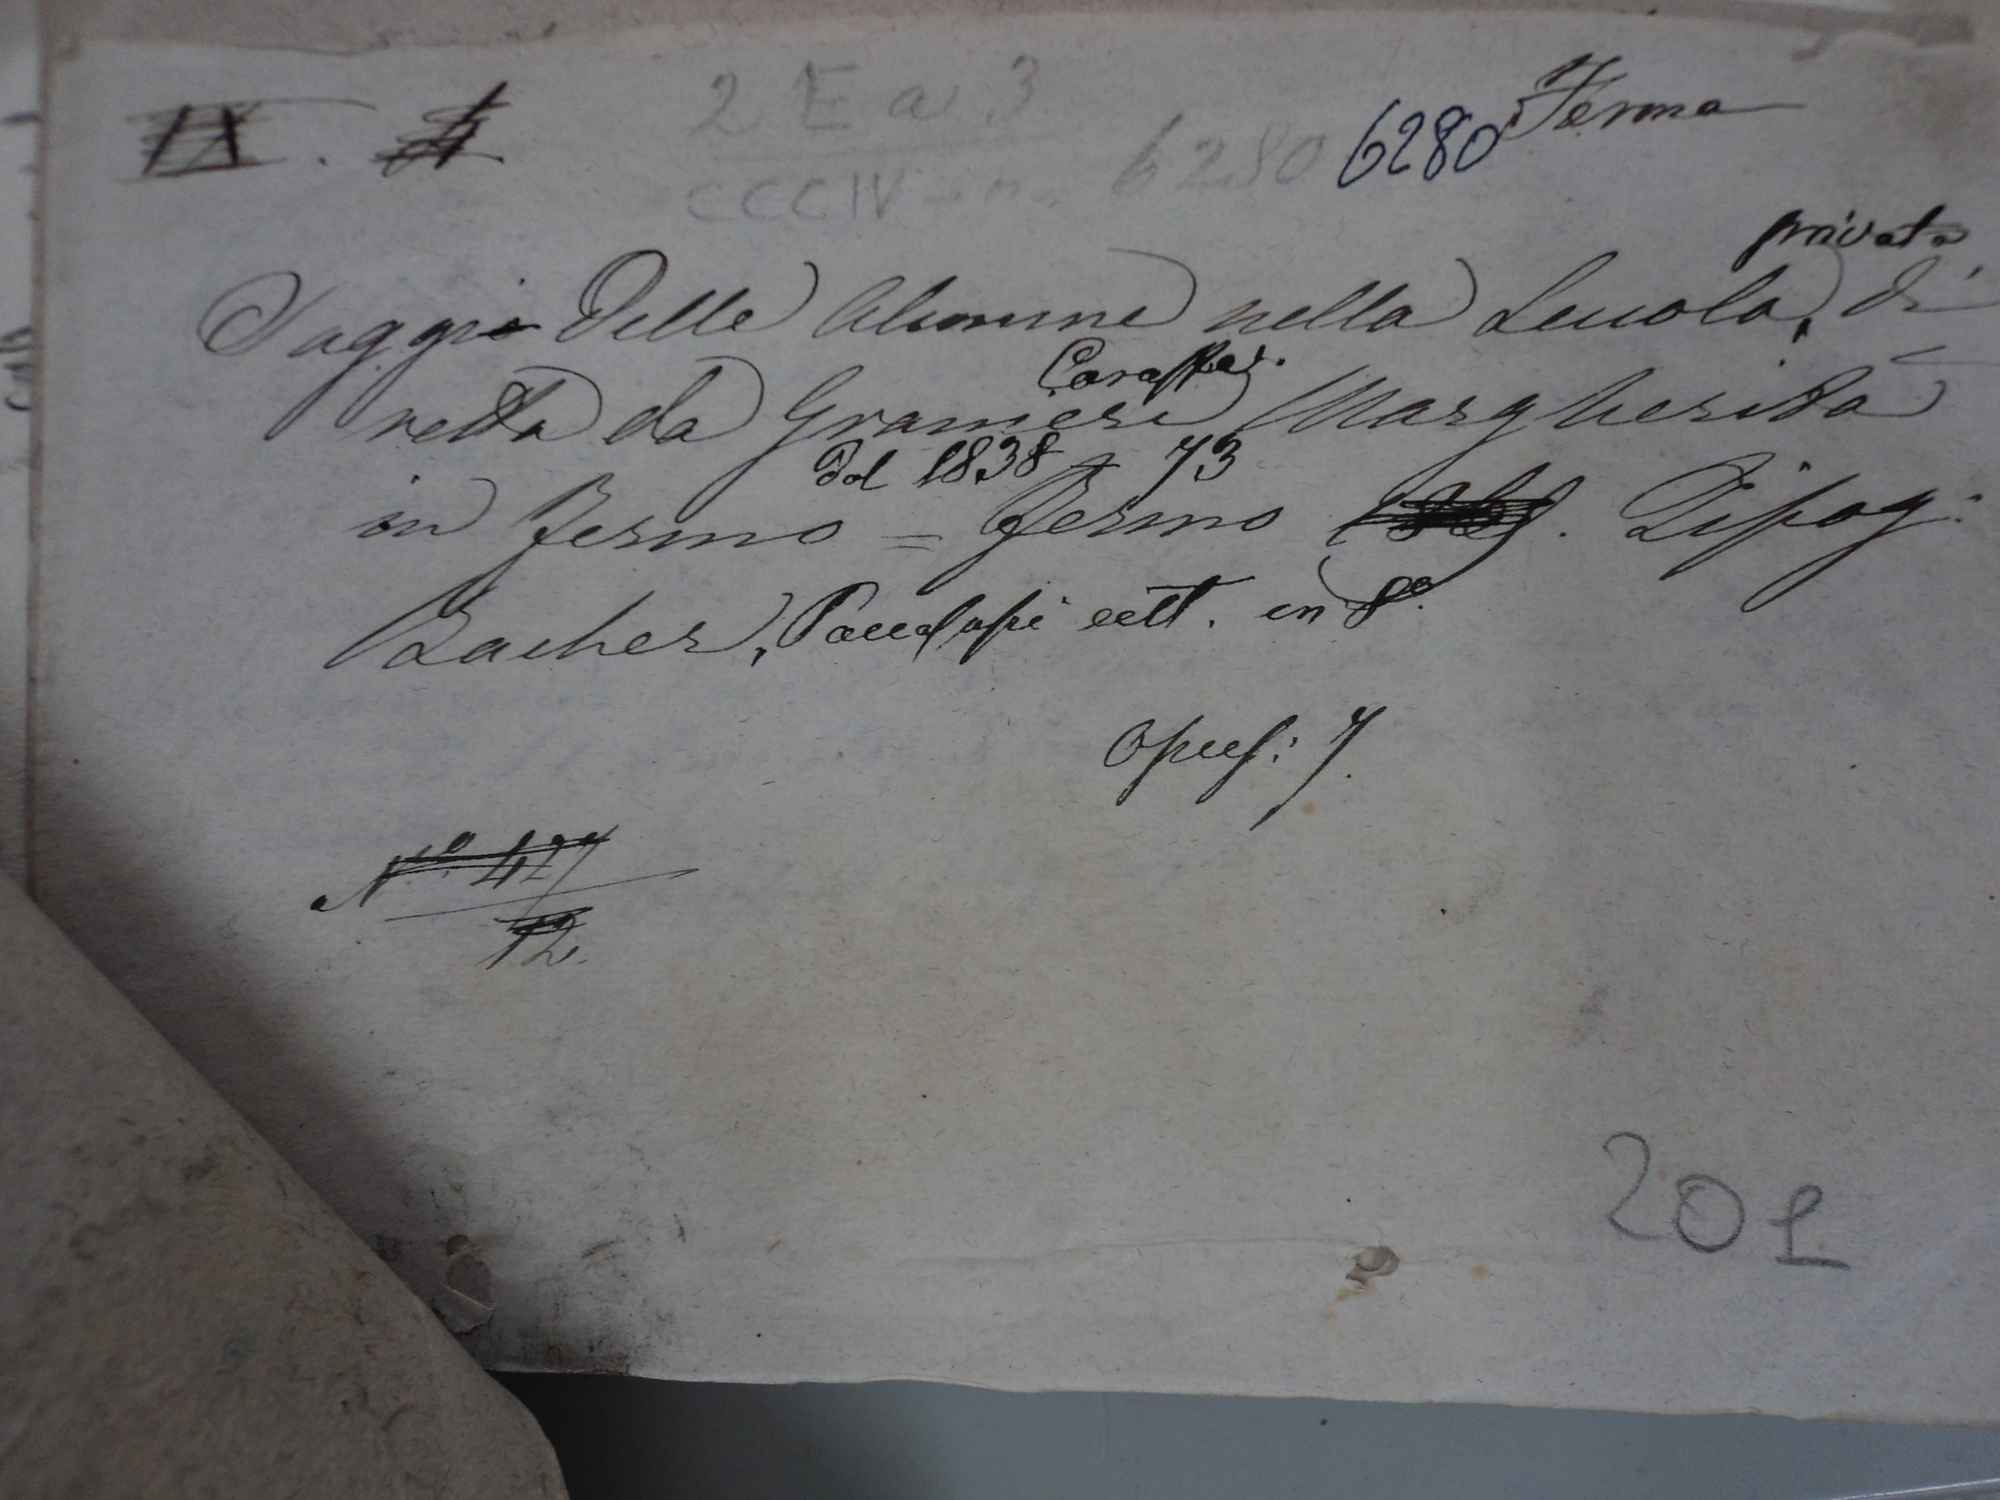 IX.
2 E a 3
CCCIV
6280
6280
Fermo
privata
Saggio delle Alunne nella Scuola, di
Caraffa
retta da Granieri Margherita
dal 1838 73
in Fermo = Fermo Tipog:
Bacher, Paccasassi ecc. in 8º.
Opusc: 7.
Nº 427
12.
201